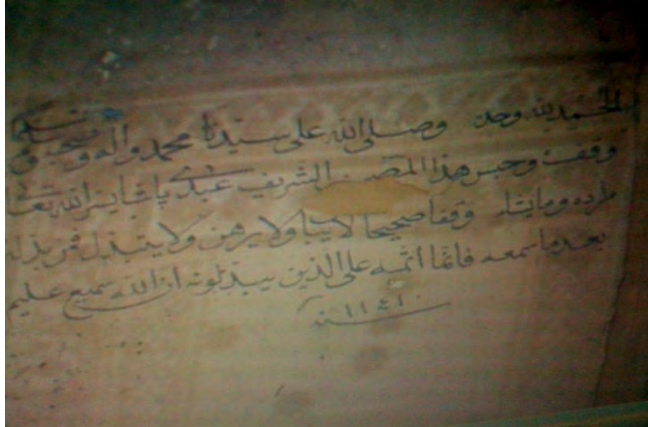 الحمد لله وحده وصلى الله على سيدنا محمد وآله وصحبه وسلم
وقف وحبس هذا المصحف الشريف عبدي باشا يسر الله تعالى
مراده وما يشاء وقفا صحيحا لا يباع ولا يرهن ولا يتبدل فمن بدله
بعد ما سمعه فانما اثمه على الذين يبدلونه ان الله سميع عليم
سنة ١١٤١